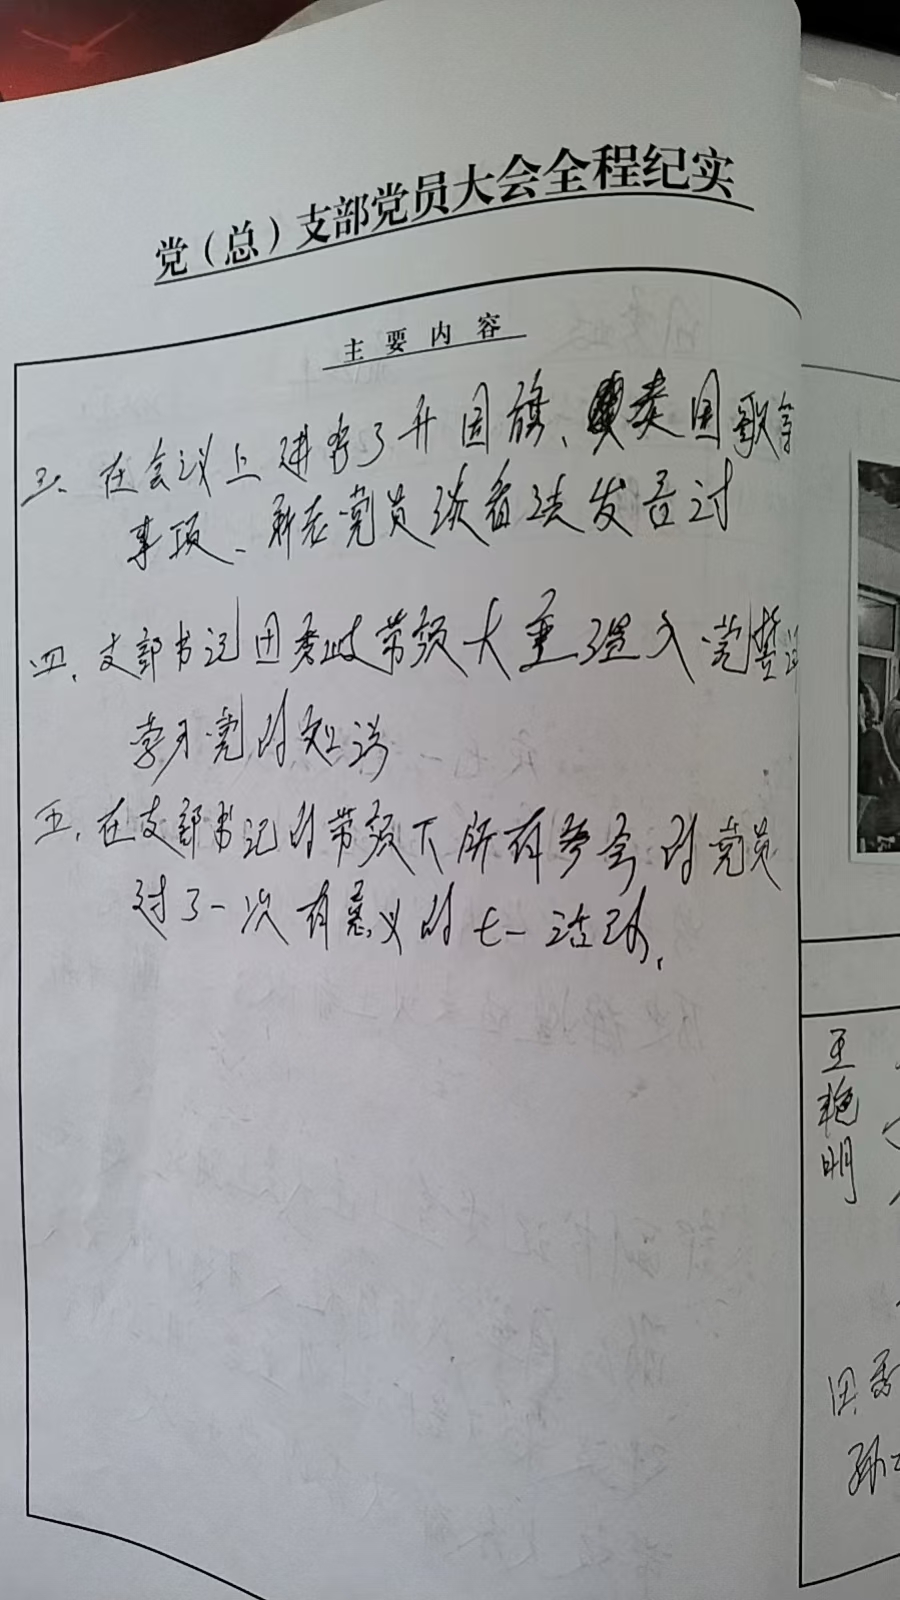 党（总）支部党员大会全程纪实
主要内容
三、在会议上进行了升国旗、奏国歌等
事项、新老党员谈看法发言讨
四、支部书记田秀岐带领大重温入党誓词
学习党的知识
五、在支部书记的带领下所有参会的党员
过了一次有意义的七一活动.
王艳明
田秀
孙